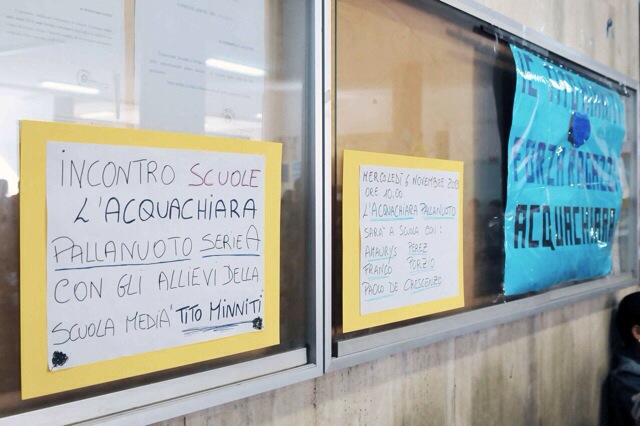 INCONTRO SCUOLE
L'ACQUACHIARA
PALLANUOTO SERIE A
CON GLI ALLIEVI DELLA
SCUOLA MEDIA TITO MINNITI
MERCOLEDÌ 6 NOVEMBRE 2013
ORE 10,00
L'ACQUACHIARA PALLANUOTO
SARÀ A SCUOLA CON:
AMAURYS PEREZ
FRANCO PORZIO
PAOLO DE CRESCENZO
ACQUACHIARA